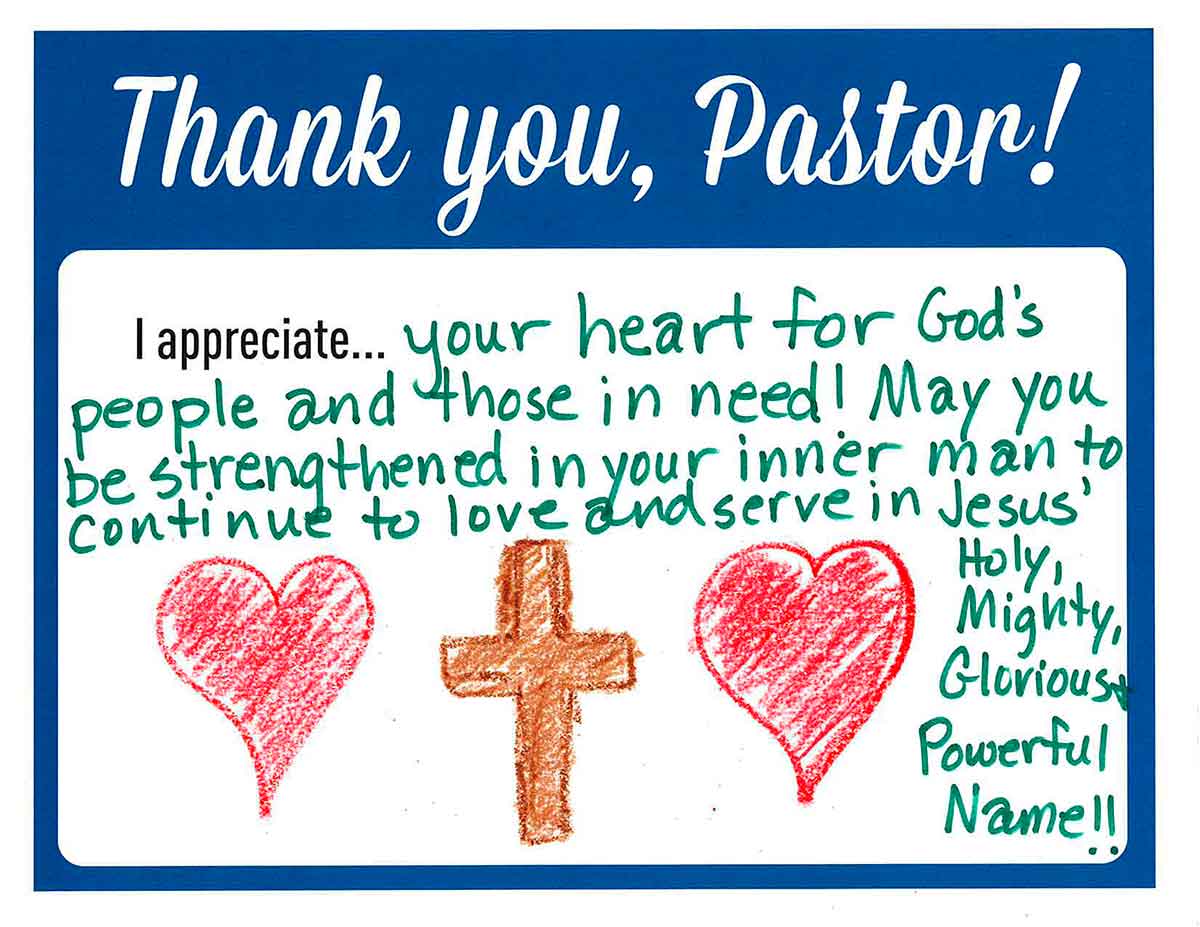 Thank you, Pastor!
I appreciate... your heart for God's
people and those in need! May you
be strengthened in your inner man to
continue to love and serve in Jesus'
Holy,
Mighty,
Glorious +
Powerful
Name!!